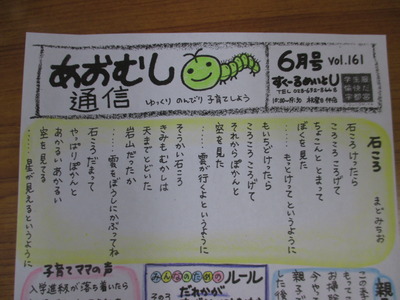 あおむし
通信
ゆっくり のんびり 子育てしよう
6月号 vol.161
すくーるめいとし
石ころ
まど みちお
石ころ けったら
ころころ ころげて
ちょこんと とまって
ぼくを 見た
……もっと けってと いうように
もいちど けったら
ころころ ころげて
それから ぽかんと
空を 見た
……雲が 行くよと いうように
そうかい 石ころ
きみも むかしは
天まで とどいた
岩山だったか
……雲を ぼうしに かぶってね
石ころ だまって
やっぱり ぽかんと
あかるい あかるい
空を 見てる
……星が 見えると いうように
子育てママの声
入学進級が落ち着いたら
みんなのための
ルール
だれかが
親